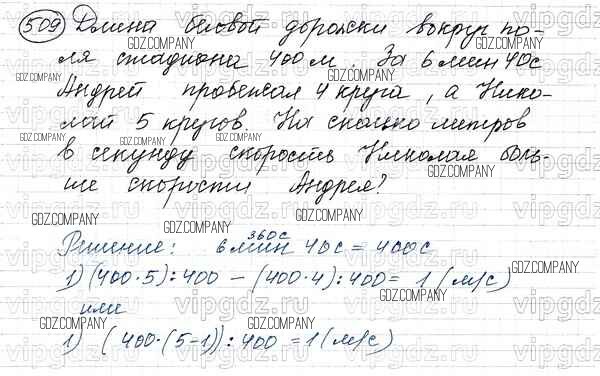 509 Длина беговой дорожки вокруг по-
ля стадиона 400 м. За 6 мин 40с
Андрей пробежал 4 круга, а Нико-
лай 5 кругов. На сколько метров
в секунду скорость Николая боль-
ше скорости Андрея?
Решение: 6 мин 40с = 400с
360с
1) (400·5):400 - (400·4):400 = 1 (м/с)
или
1) (400·(5-1)):400 = 1 (м/с)